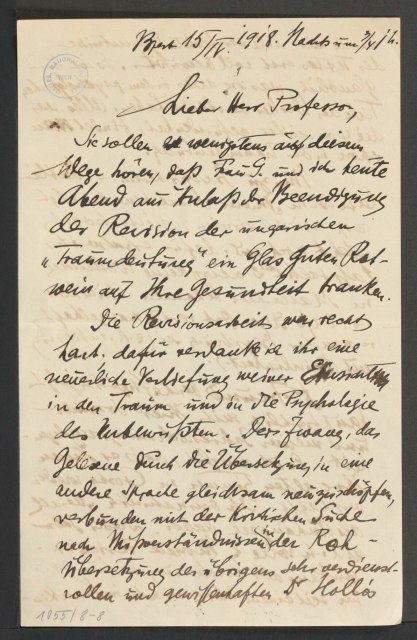 Bpest 15/IV. 1918. Nachts um 3/4 11 h.
Lieber Herr Professor,
Sie sollen wenigstens auf diesem
Wege hören, daß Frau G. und ich heute
Abend aus Anlaß der Beendigung
der Revision der ungarischen
„Traumdeutung“ ein Glas guten Rot-
wein auf Ihre Gesundheit tranken.
Die Revisionsarbeit war recht
hart, dafür verdanke ich ihr eine
neuerliche Vertiefung meiner Einsicht
in den Traum und in die Psychologie
des Unbewußten. Der Zwang, das
Gelesene durch die Übersetzung in eine
andere Sprache gleichsam neuzuschöpfen,
verbunden mit der kritischen Suche
nach Mißverständnissen in der Roh-
übersetzung des übrigens sehr verdienst-
vollen und gewissenhaften Dr Hollós
1055/8-8